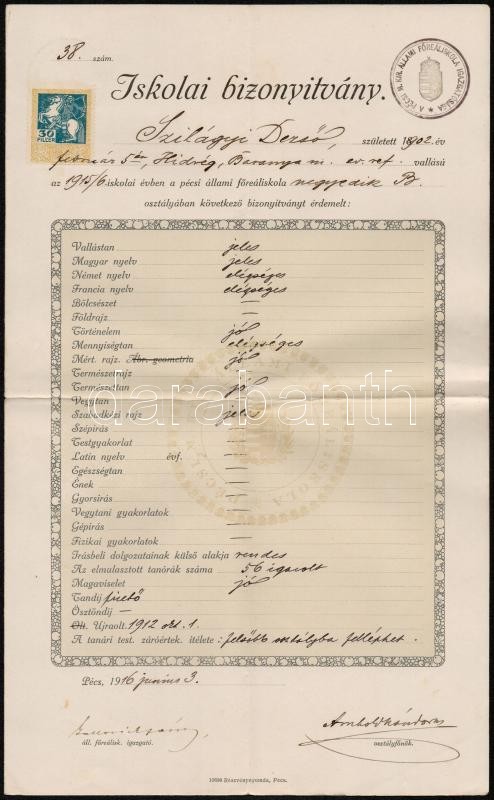 38. szám.
A PÉCSI M. KIR. ÁLLAMI FŐREÁLISKOLA IGAZGATÓSÁGA
30 FILLÉR
Iskolai bizonyitvány.
Szilágyi Dezső, született 1902. év
február 5én, Hidvég, Baranya m. ev. ref. vallású
az 1915/6. iskolai évben a pécsi állami főreáliskola negyedik B.
osztályában következő bizonyitványt érdemelt:
Vallástan jeles
Magyar nyelv jeles
Német nyelv elégséges
Francia nyelv elégséges
Bölcsészet —
Földrajz —
Történelem jó
Mennyiségtan elégséges
Mért. rajz. Ábr. geometria jó
Természetrajz —
Természettan jó
Vegytan —
Szabadkézi rajz jeles
Szépirás —
Testgyakorlat —
Latin nyelv évf. —
Egészségtan —
Ének —
Gyorsirás —
Vegytani gyakorlatok —
Gépirás —
Fizikai gyakorlatok —
Irásbeli dolgozatainak külső alakja rendes
Az elmulasztott tanórák száma 56 igazolt
Magaviselet jó
Tandij fizető
Ösztöndij —
Olt. Ujraolt. 1912 okt. 1.
A tanári test. záróértek. itélete: felsőbb osztályba felléphet.
darabanth
Pécs, 1916 junius 3.
áll. főreálisk. igazgató.
Arnhold Nándor
osztályfőnök.
Részvénynyomda, Pécs.